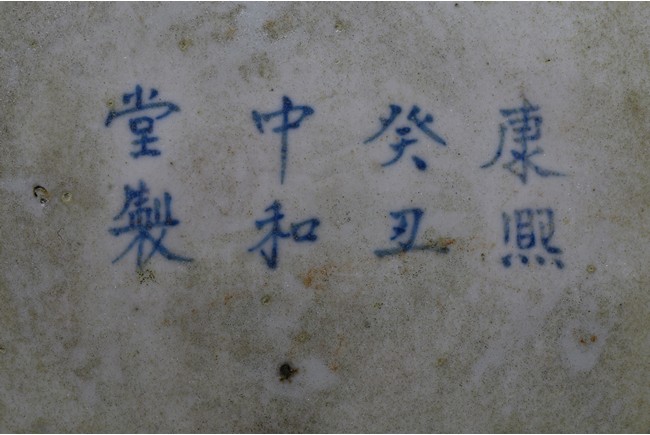 康熙
癸丑
中和
堂製